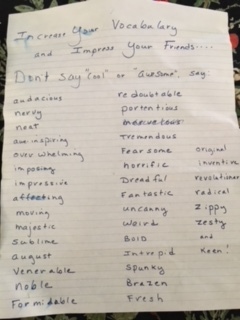 Increase Your Vocabulary
and Impress Your Friends....
Don't say "Cool" or "Awesome", say:
audacious
nervy
neat
awe inspiring
over whelming
imposing
impressive
affecting
moving
majestic
Sublime
august
Venerable
noble
Formidable
redoubtable
portentious
marvelous
Tremendous
Fearsome
horrific
Dreadful
Fantastic
uncanny
Weird
Bold
Intrepid
Spunky
Brazen
Fresh
original
inventive
revolutionary
radical
Zippy
Zesty
and
Keen!